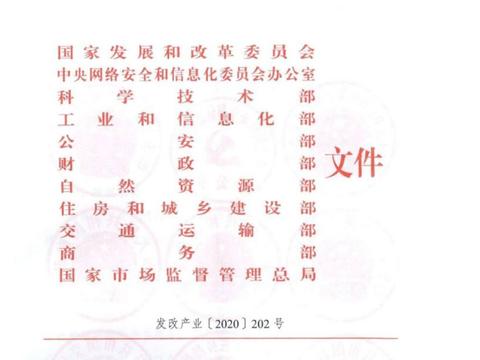 国家发展和改革委员会
中央网络安全和信息化委员会办公室
科学技术部
工业和信息化部
公安部
财政部
自然资源部
住房和城乡建设部
交通运输部
商务部
国家市场监督管理总局
文件
发改产业〔2020〕202号